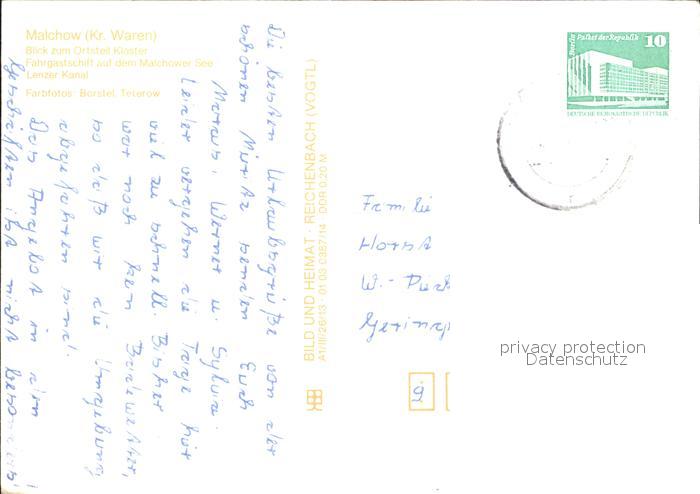 Malchow (Kr. Waren)
Blick zum Ortsteil Kloster
Fahrgastschiff auf dem Malchower See
Lenzer Kanal
Farbfotos: Borstel, Teterow
Die besten Urlaubsgrüße von der
schönen Müritz senden Euch
Werner u. Sylvia.
Leider vergehen die Tage hier
viel zu schnell. Bisher
war noch kein Badewetter,
so daß wir die Umgebung
abgefahren sind.
Das Angebot in den
Geschäften ist nicht besonders!
BILD UND HEIMAT · REICHENBACH (VOGTL)
A1/III/26/13 · 01 03 0357/14 · DDR 0,20 M
Berlin Palast der Republik
10
DEUTSCHE DEMOKRATISCHE REPUBLIK
Familie
Horst
W.-Pieck
9
privacy protection
Datenschutz